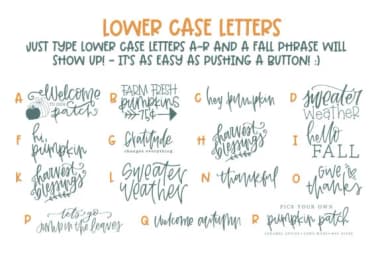 LOWER CASE LETTERS
JUST TYPE LOWER CASE LETTERS A-R AND A FALL PHRASE WILL
SHOW UP! - IT'S AS EASY AS PUSHING A BUTTON! :)
A Welcome to our patch
B FARM FRESH pumpkins 75¢
C hey pumpkin
D sweater weather
F hi, pumpkin
G Gratitude changes everything
H harvest blessings
I hello FALL
K harvest blessings
L sweater weather
N thankful
O give thanks
P let's go in the leaves
Q welcome autumn
R PICK YOUR OWN pumpkin patch